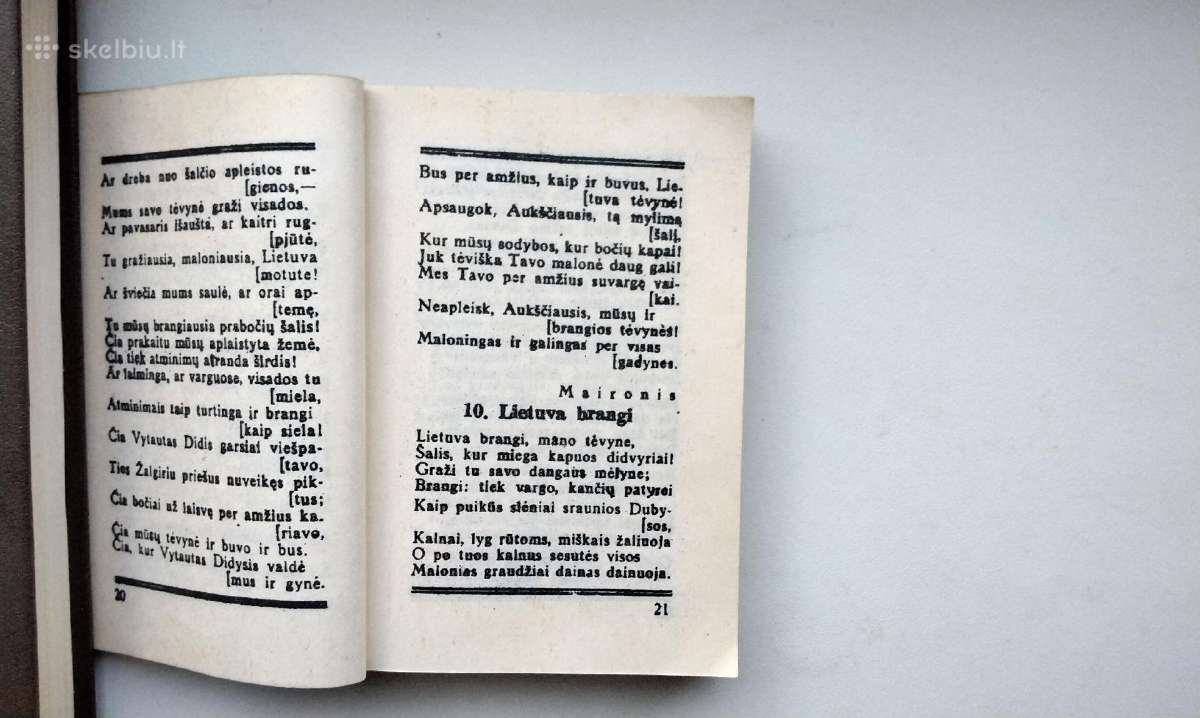 skelbiu.lt
Ar dreba nuo šalčio apleistos ru-
[gienos,—
Mums savo tėvynė graži visados.
Ar pavasaris išauštą, ar kaitri rug-
[pjūtė,
Tu gražiausia, maloniausia, Lietuva
[motute!
Ar šviečia mums saulė, ar orai ap-
[temę,
Tu mūsų brangiausia prabočių šalis!
Čia prakaitu mūsų aplaistyta žemė,
Čia tiek atminimų atranda širdis!
Ar laiminga, ar varguose, visados tu
[miela,
Atminimais taip turtinga ir brangi
[kaip siela!
Čia Vytautas Didis garsiai viešpa-
[tavo,
Ties Žalgiriu priešus nuveikęs pik-
[tus;
Čia bočiai už laisvę per amžius ka-
[riavo,
Čia mūsų tėvynė ir buvo ir bus.
Čia, kur Vytautas Didysis valdė
[mus ir gynė.
20
Bus per amžius, kaip ir buvus, Lie-
[tuva tėvynė!
Apsaugok, Aukščiausis, tą mylimą
[šalį,
Kur mūsų sodybos, kur bočių kapai!
Juk tėviška Tavo malonė daug gali!
Mes Tavo per amžius suvargę vai-
[kai.
Neapleisk, Aukščiausis, mūsų ir
[brangios tėvynės!
Maloningas ir galingas per visas
[gadynes.
Maironis
10. Lietuva brangi
Lietuva brangi, mano tėvyne,
Šalis, kur miega kapuos didvyriai!
Graži tu savo dangaus mėlyne;
Brangi: tiek vargo, kančių patyrei
Kaip puikūs slėniai sraunios Duby-
[sos,
Kalnai, lyg rūtoms, miškais žaliuoja
O po tuos kalnus sesutės visos
Malonias graudžiai dainas dainuoja.
21